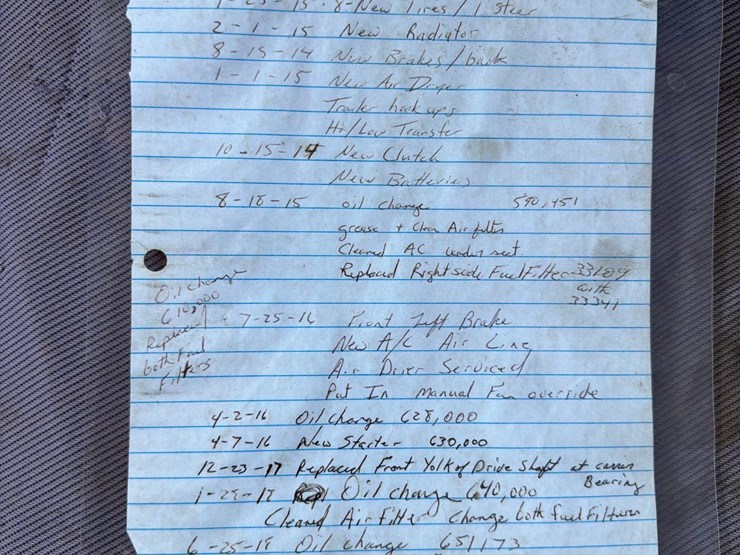 8-New Tires / 1 Steer
2-1-15 New Radiator
8-15-14 New Brakes / back
1-1-15 New Air Dryer
Trailer hook ups
Hi/Low Transfer
10-15-14 New Clutch
New Batteries
8-18-15 oil change 590,451
grease + Clean Air filter
Cleaned AC under seat
Replaced Right side Fuel Filter 33689
with
33341
Oil change
610,000
Replaced
both Fuel
Filters
7-25-16 Front Left Brake
New A/C Air Line
Air Drier Serviced
Put In manual Fan override
4-2-16 Oil Change 628,000
4-7-16 New Starter 630,000
12-23-17 Replaced Front Yolk of Drive Shaft at
Bearing
Oil change 640,000
Cleaned Air Filter change both fuel Filters
Oil change 651173